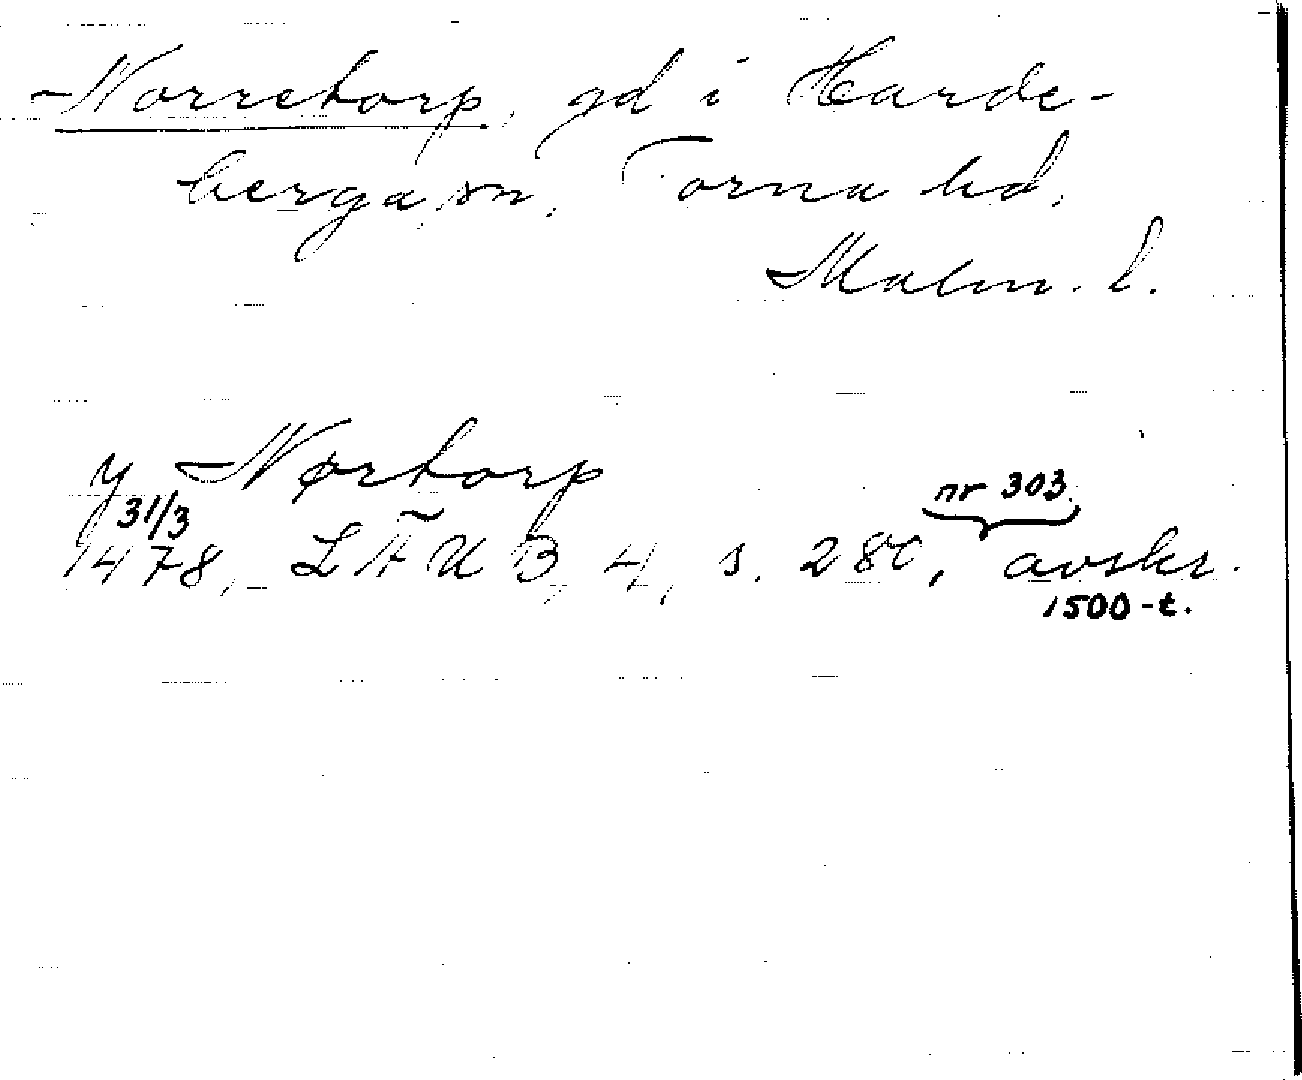 Norretorp, gd i Harde-
berga sn. Torna hd.
Malm. l.
y Nørtorp
nr 303
31/3
1478, LÄUB 4, s. 280, avskr.
1500-t.